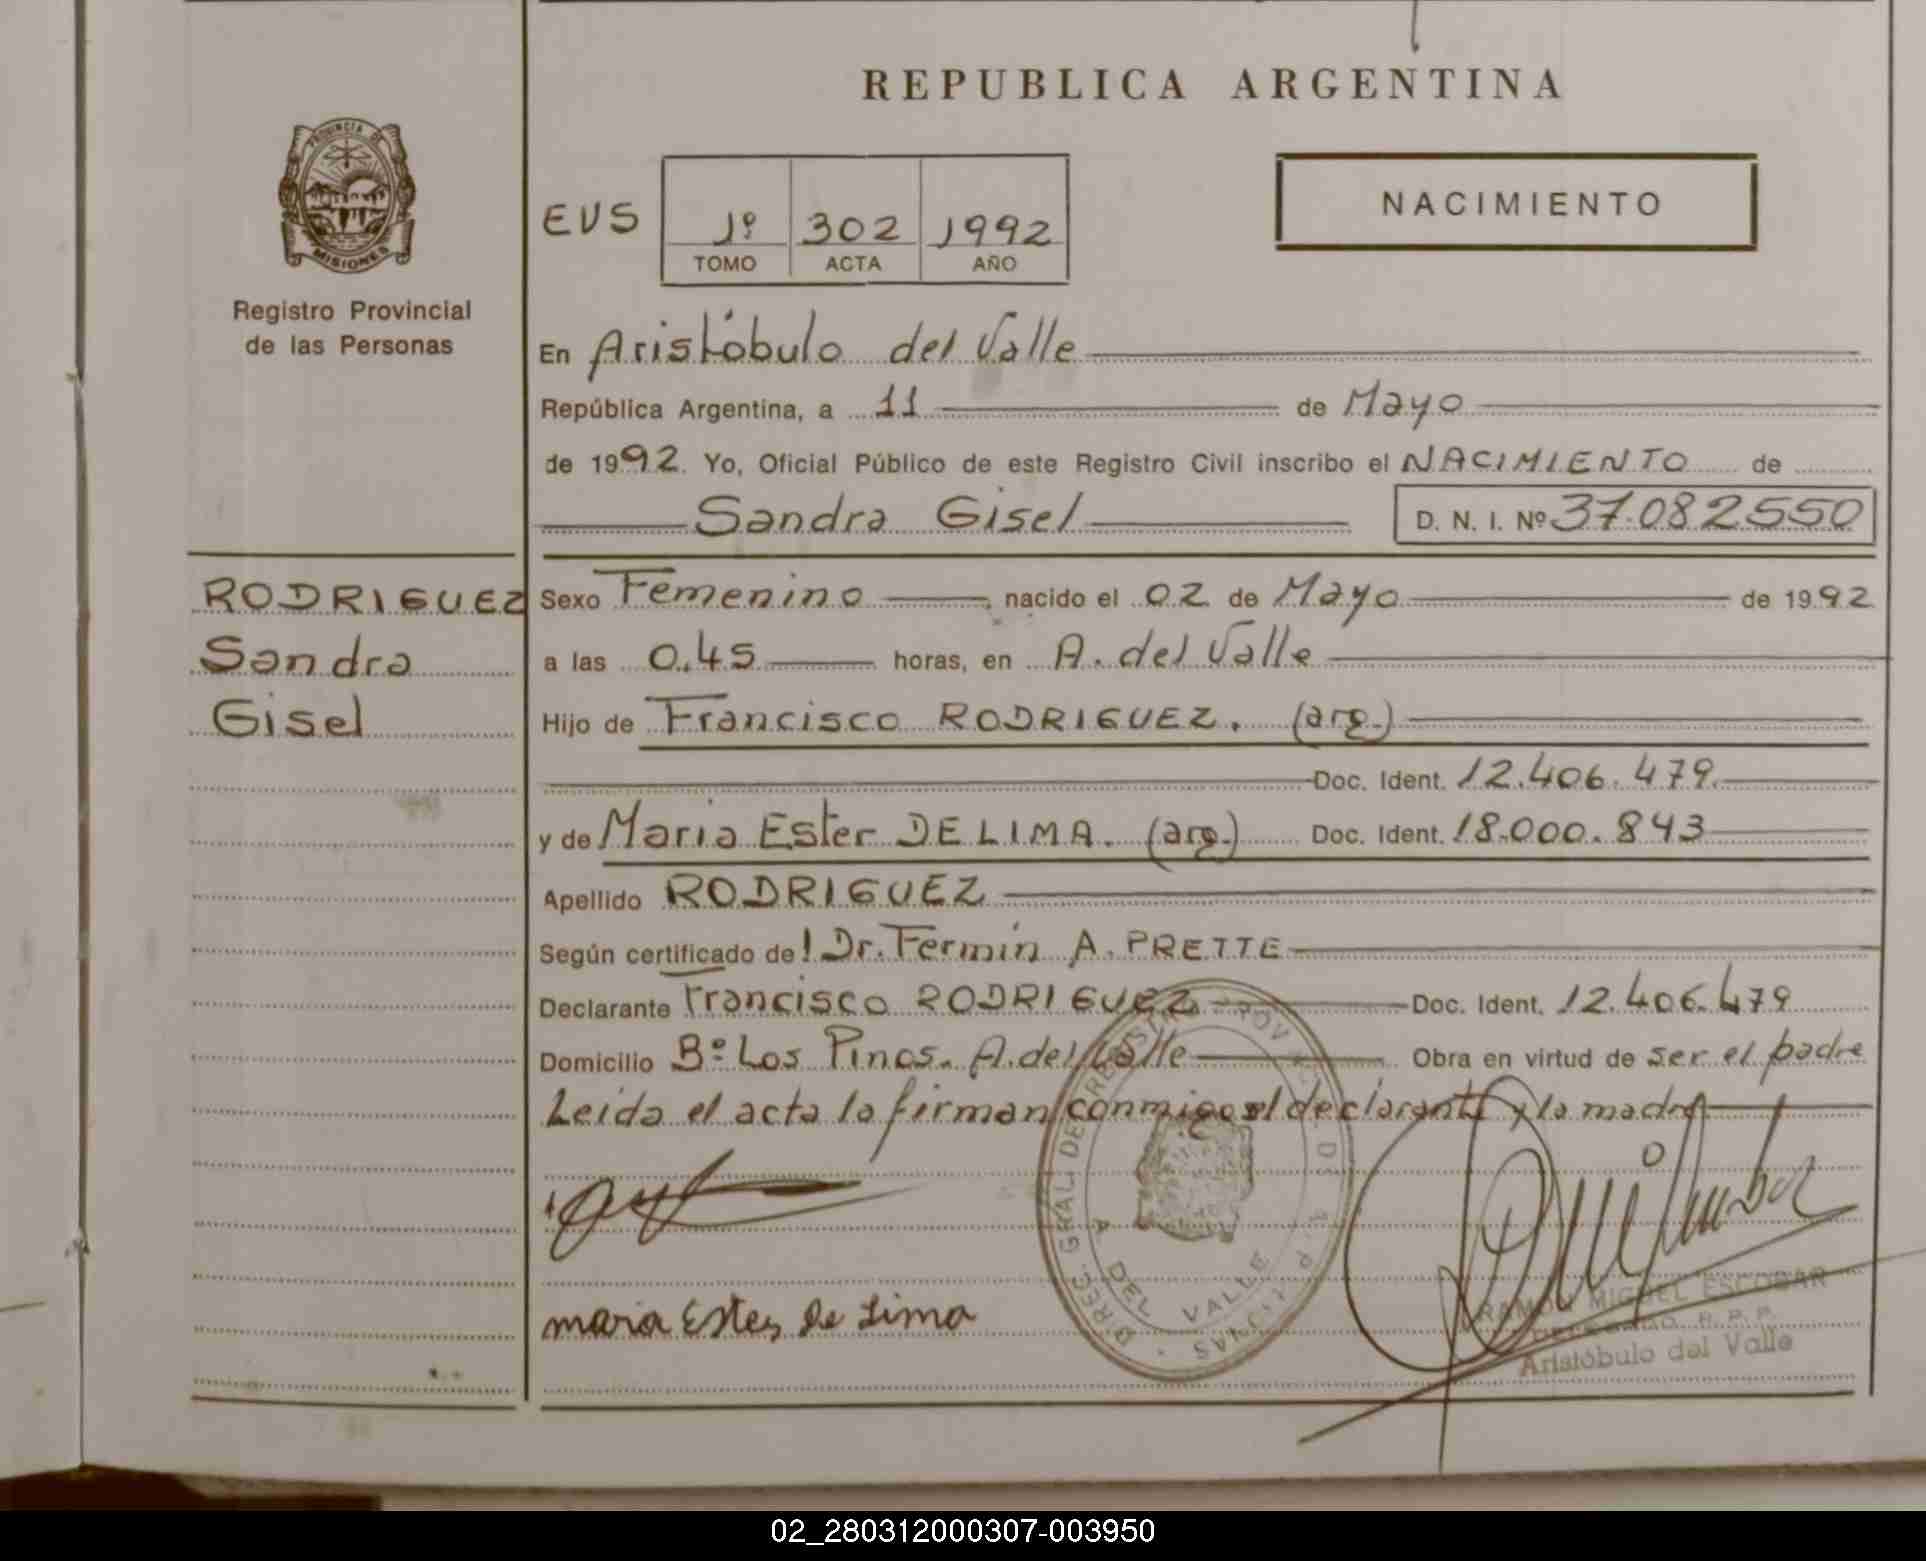 REPUBLICA ARGENTINA
PROVINCIA DE
MISIONES
Registro Provincial
de las Personas
NACIMIENTO
EVS
1º 302 1992
TOMO ACTA AÑO
En Aristóbulo del Valle
República Argentina, a 11 de Mayo
de 1992. Yo, Oficial Público de este Registro Civil inscribo el NACIMIENTO de
Sandra Gisel D. N. I. Nº 37.082550
RODRIGUEZ
Sandra
Gisel
Sexo Femenino, nacido el 02 de Mayo de 1992
a las 0.45 horas, en A. del Valle
Hijo de Francisco RODRIGUEZ. (arg.)
Doc. Ident. 12.406.479.
y de Maria Ester DE LIMA. (arg.) Doc. Ident. 18.000.843
Apellido RODRIGUEZ
Según certificado de Dr. Fermín A. PRETTE
Declarante Francisco RODRIGUEZ Doc. Ident. 12.406.479
Domicilio Bº Los Pinos. A. del Valle Obra en virtud de ser el padre
Leida el acta la firman conmigo el declarante y la madre
maria Ester De Lima
A DEL VALLE
RAMON MIGUEL ESCOBAR
R. P. P.
Aristóbulo del Valle
02_280312000307-003950